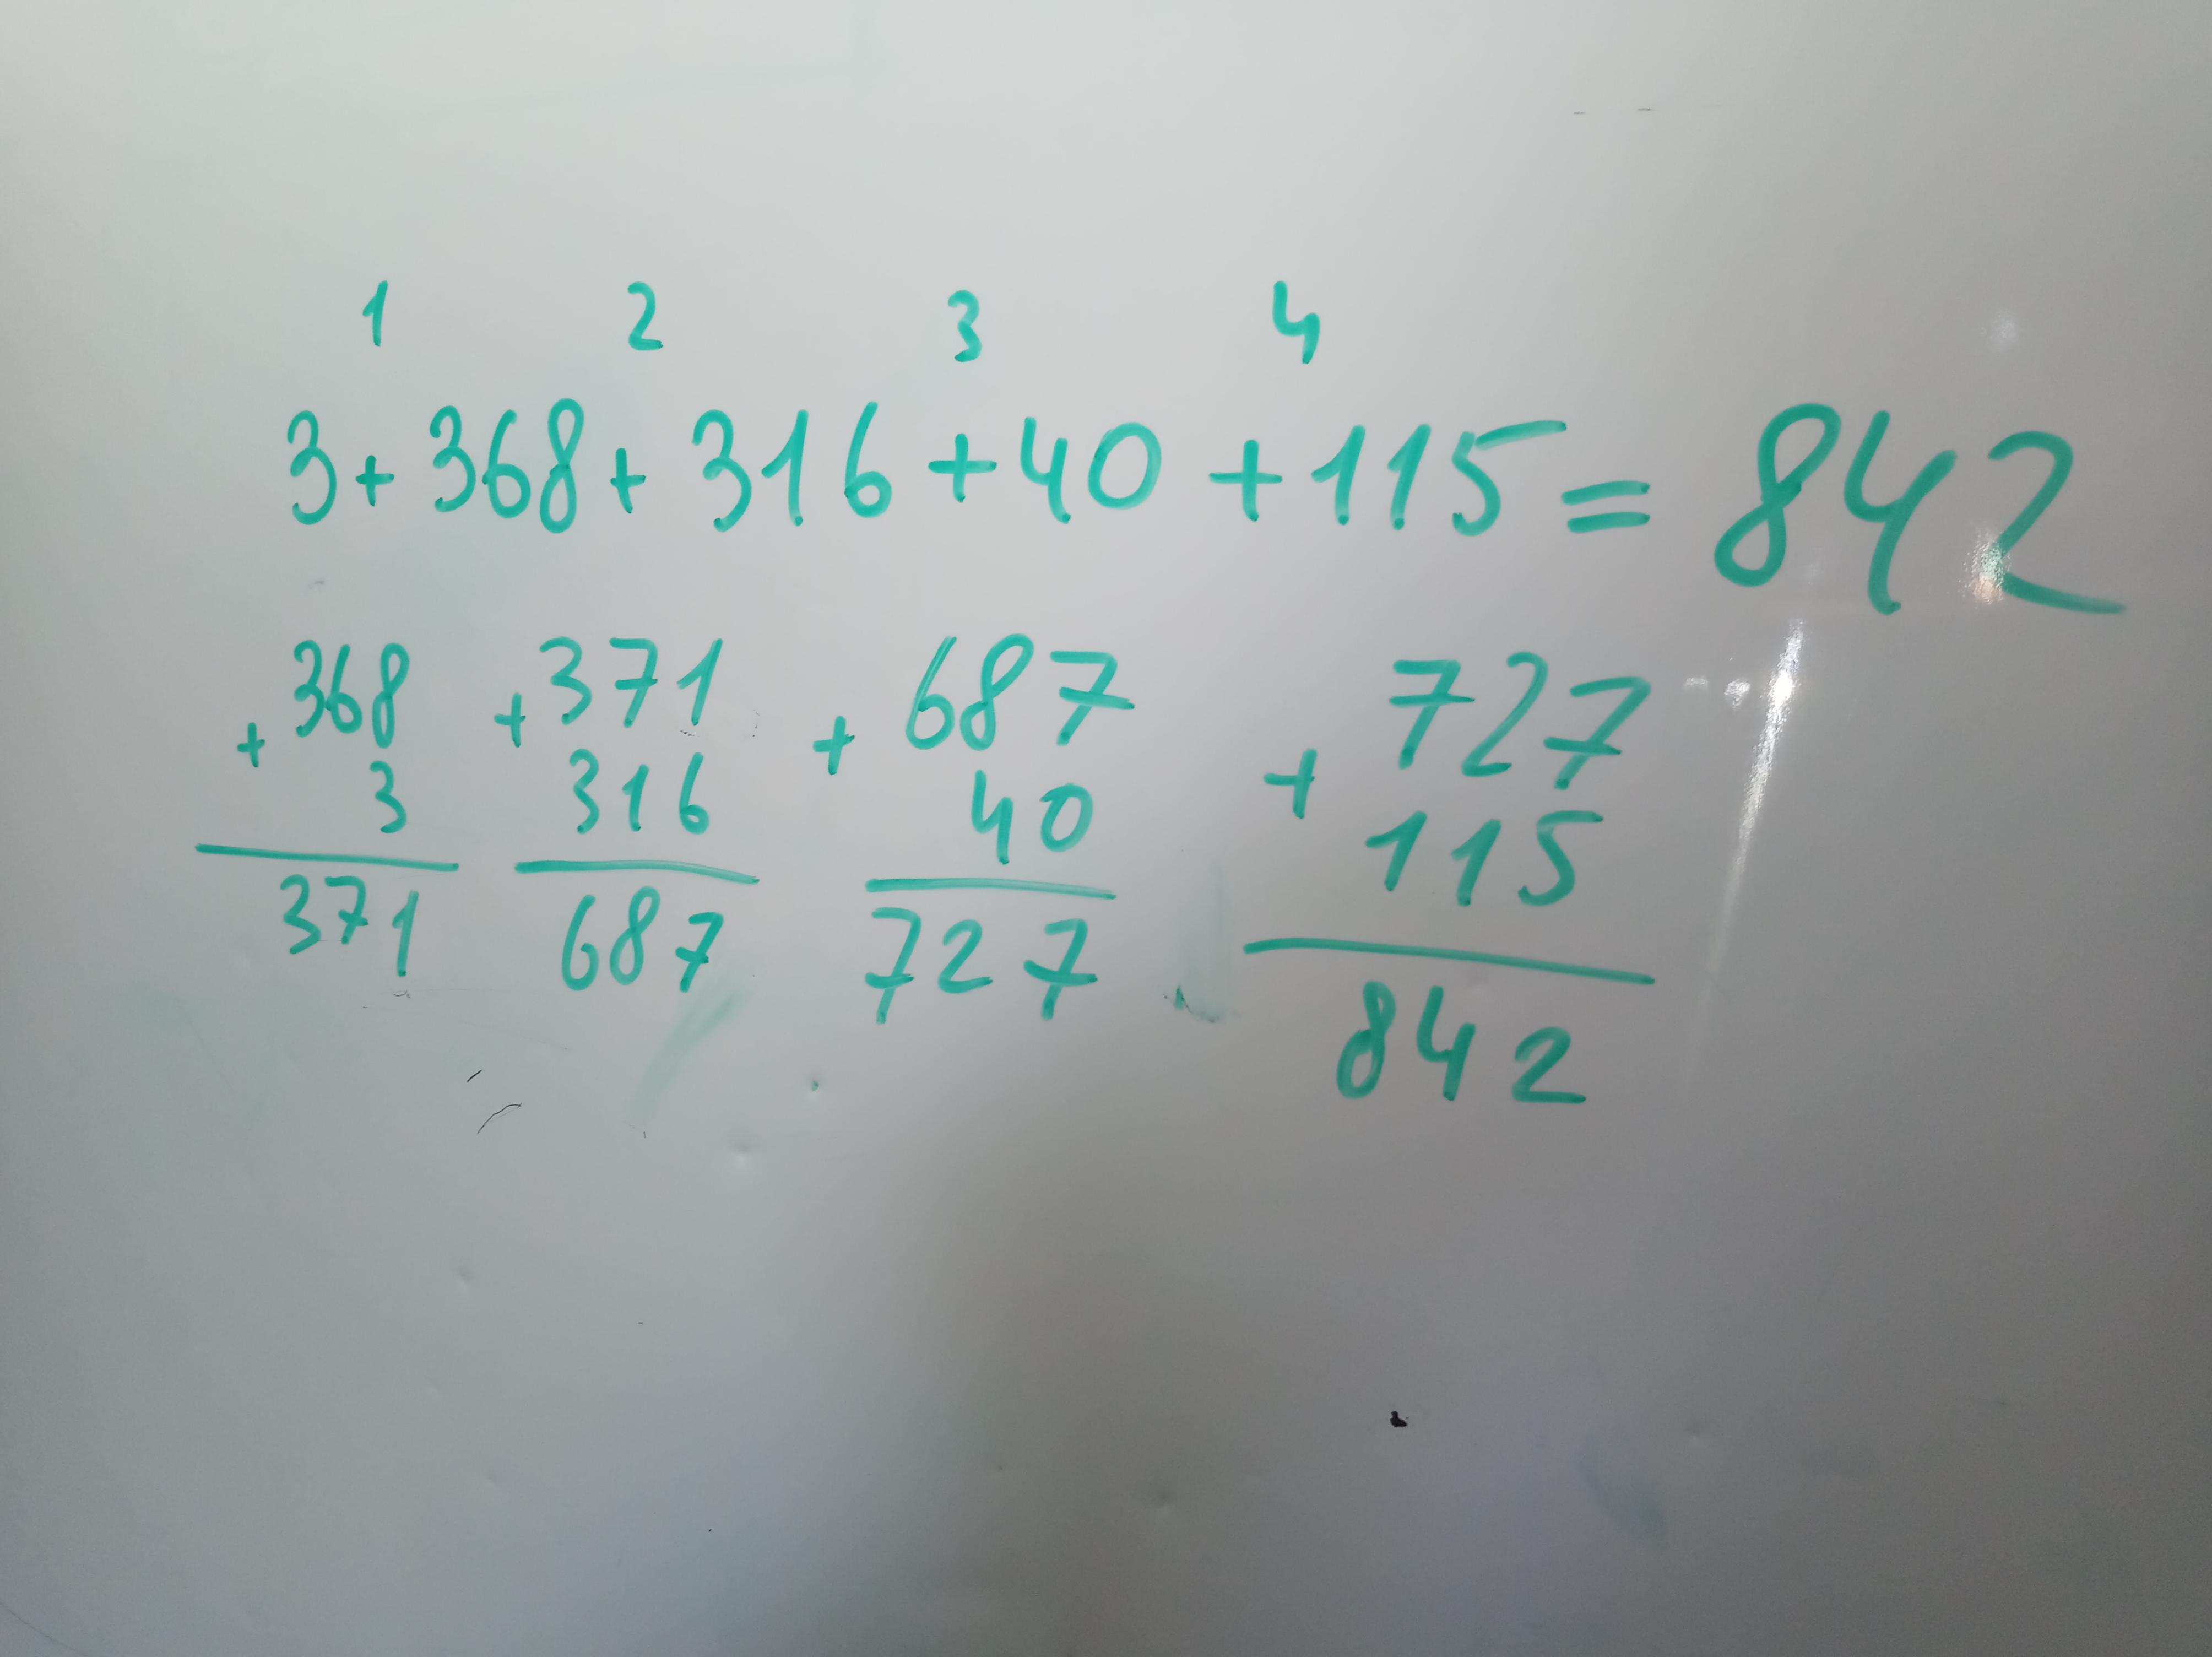 1 2 3 4
3 + 368 + 316 + 40 + 115 = 842
368
+
3
371
+ 371
316
687
+ 687
40
727
727
+
115
842